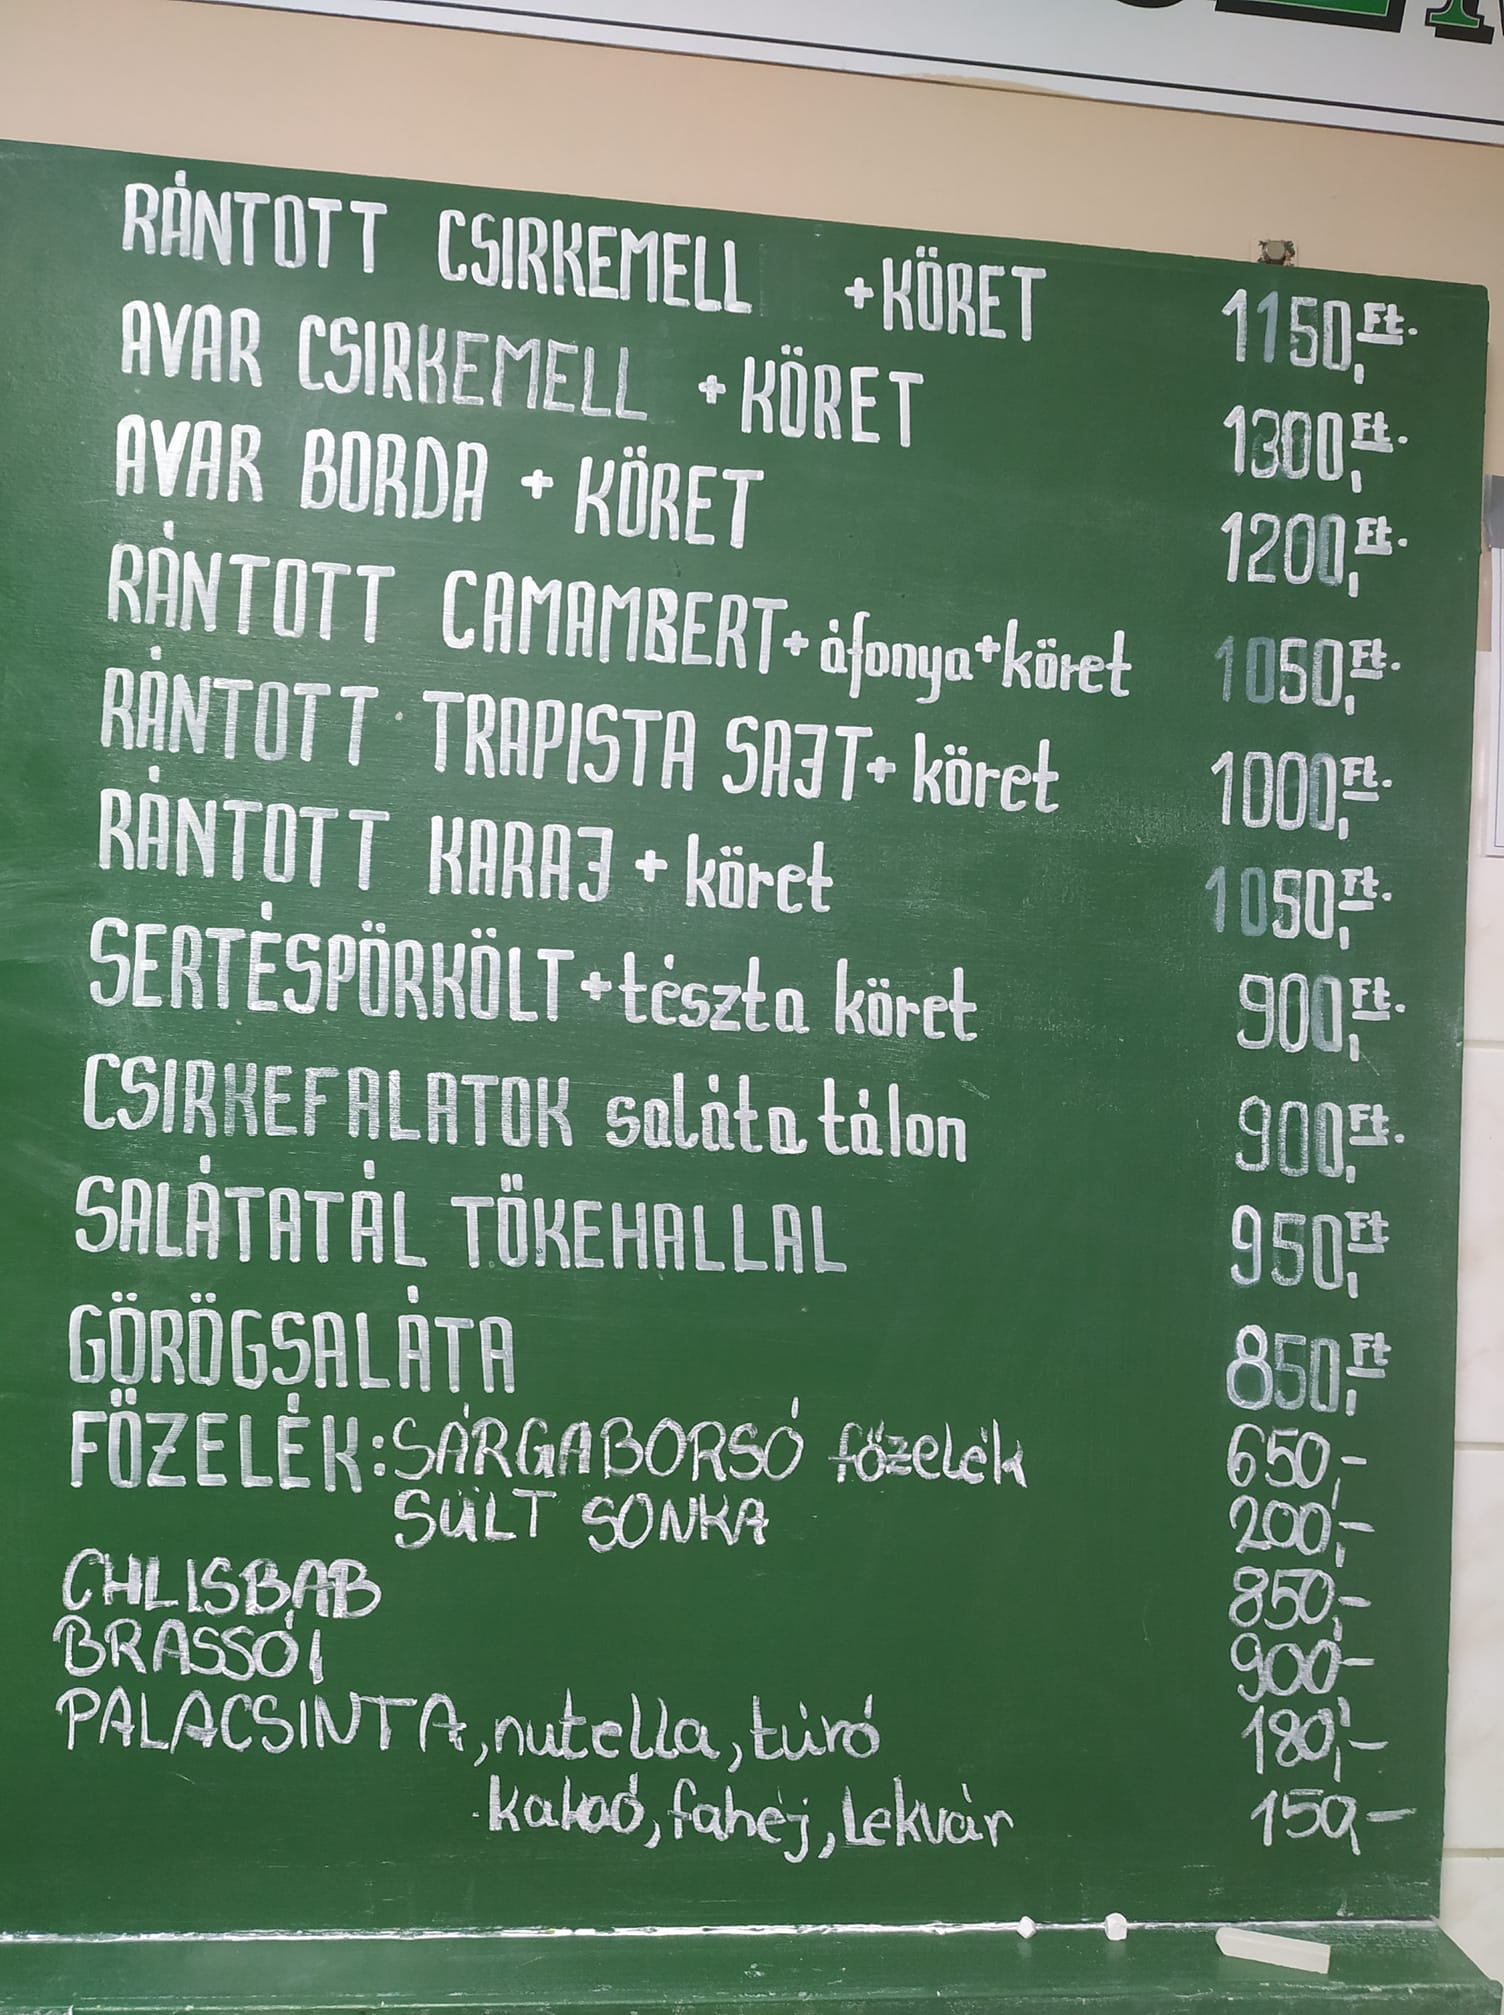 RÁNTOTT CSIRKEMELL +KÖRET 1150,Ft.
AVAR CSIRKEMELL +KÖRET 1300,Ft.
AVAR BORDA + KÖRET 1200,Ft.
RÁNTOTT CAMAMBERT+áfonya+köret 1050,Ft.
RÁNTOTT TRAPISTA SAJT+ köret 1000,Ft.
RÁNTOTT KARAJ + köret 1050,Ft.
SERTÉSPÖRKÖLT+tészta köret 900,Ft.
CSIRKEFALATOK saláta tálon 900,Ft.
SALÁTATÁL TŐKEHALLAL 950,Ft
GÖRÖGSALÁTA 850,Ft
FŐZELÉK:SÁRGABORSÓ főzelék 650,-
SÜLT SONKA 200,-
CHLISBAB 850,-
BRASSÓI 900,-
PALACSINTA, nutella, túró 180,-
kakaó, fahéj, lekvár 150,-